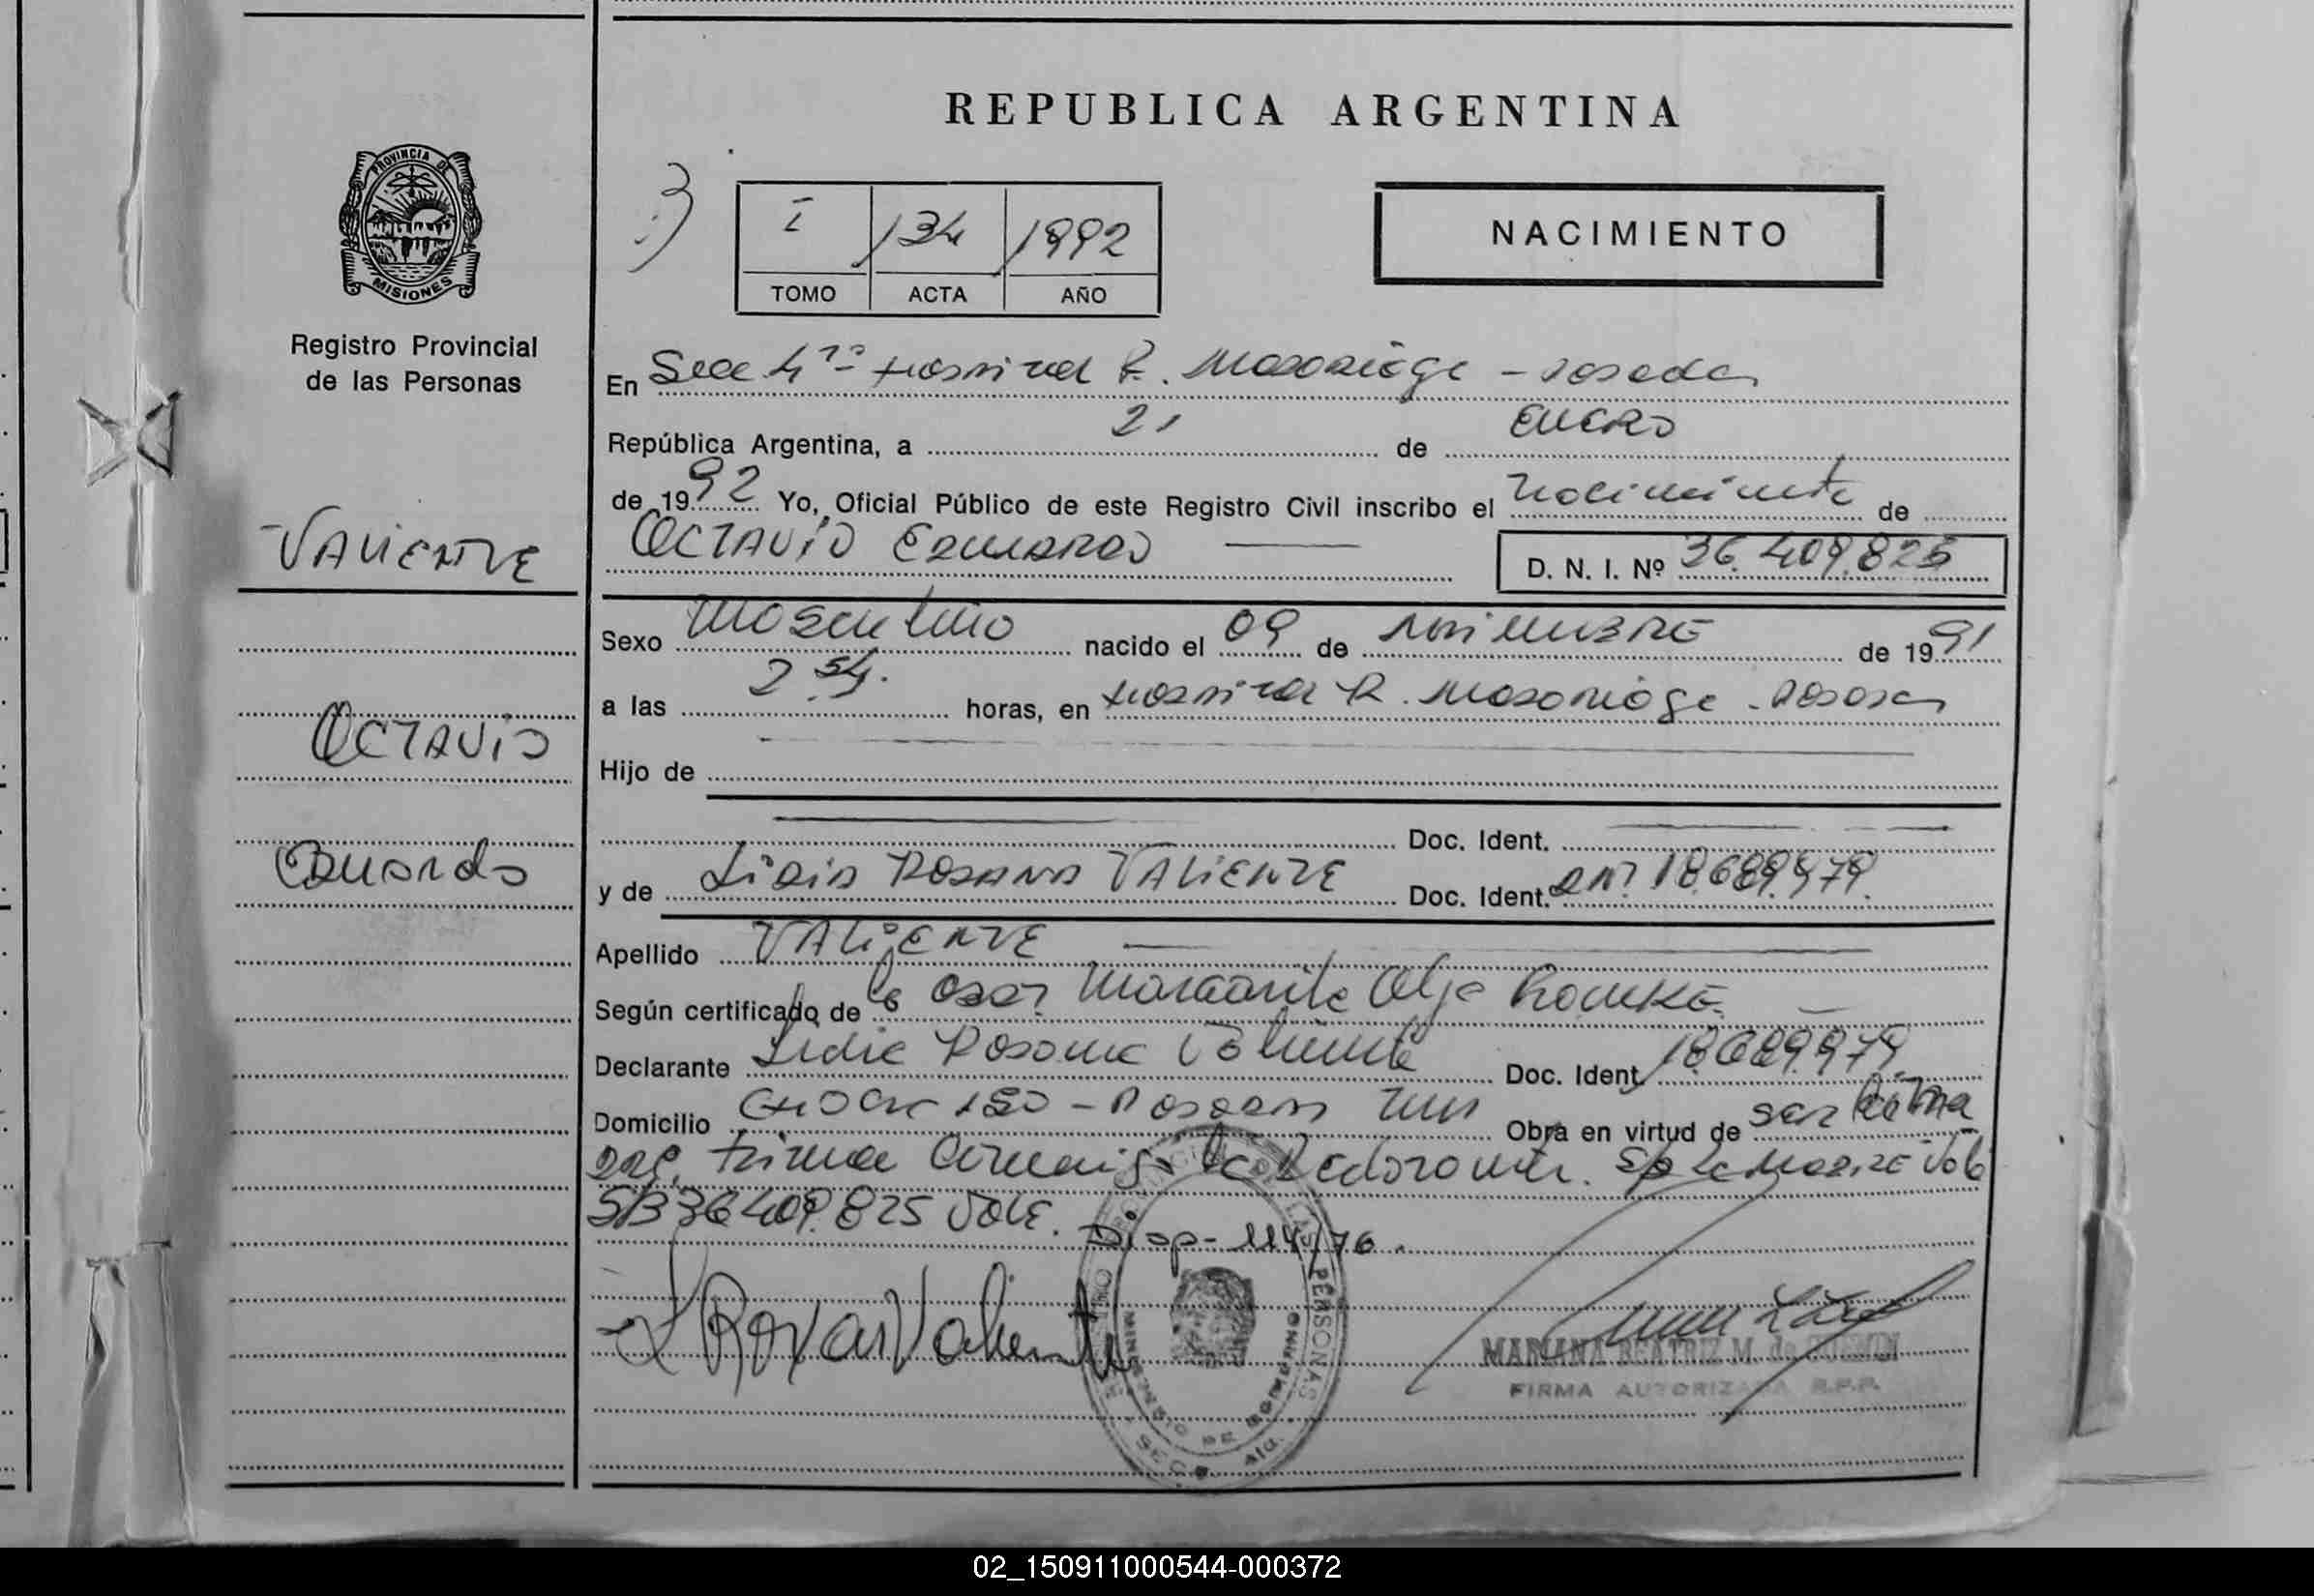 REPUBLICA ARGENTINA
PROVINCIA DE MISIONES
Registro Provincial
de las Personas
I 134 1992
TOMO ACTA AÑO
NACIMIENTO
En Secc 4ta Hospital R. Madariaga - Posadas
República Argentina, a 21 de ENERO
de 1992 Yo, Oficial Público de este Registro Civil inscribo el nacimiento de
OCTAVIO EDUARDO D. N. I. Nº 36.409.825
VALIENTE
OCTAVIO
Eduardo
Sexo masculino nacido el 09 de de 1991
a las 2 54. horas, en Hospital R. Madariaga - Posadas
Hijo de
Doc. Ident.
y de Lidia ROSANA VALIENTE Doc. Ident. DNI 18.689.979.
Apellido VALIENTE
Según certificado de la Obst. Margarita Olga
Declarante Lidia Rosana Valiente Doc. Ident. 18.689.979.
Domicilio - Posadas Obra en virtud de
firma la declarante. la Madre Vale
S/B 36.409.825 VALE. Disp- 114/76.
L Roxas Valiente
MARIANA BEATRIZ M. de
FIRMA AUTORIZADA R.P.P.
LAS PERSONAS
MINISTERIO DE GOBIERNO
SECC. 4ta.
02_150911000544-000372